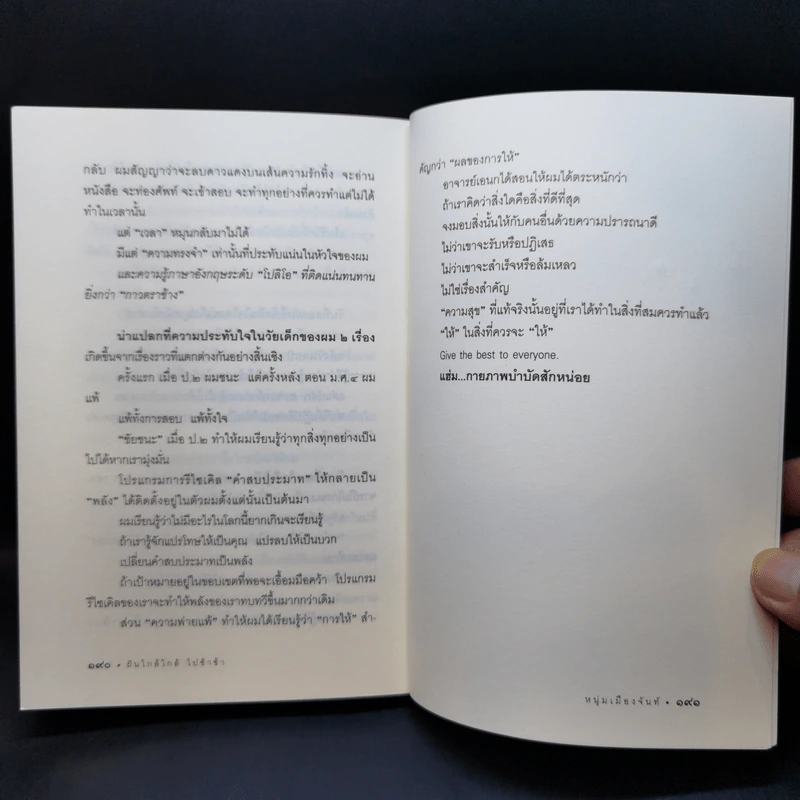 กลับ ผมสัญญาว่าจะลบดาวแดงบนเส้นความรักทิ้ง จะอ่าน
หนังสือ จะท่องศัพท์ จะเข้าสอบ จะทำทุกอย่างที่ควรทำแต่ไม่ได้
ทำในเวลานั้น
แต่ “เวลา” หมุนกลับมาไม่ได้
มีแต่ “ความทรงจำ” เท่านั้นที่ประทับแน่นในหัวใจของผม
และความรู้ภาษาอังกฤษระดับ “โปลิโอ” ที่ติดแน่นทนทาน
ยิ่งกว่า “กาวตราช้าง”
น่าแปลกที่ความประทับใจในวัยเด็กของผม ๒ เรื่อง
เกิดขึ้นจากเรื่องราวที่แตกต่างกันอย่างสิ้นเชิง
ครั้งแรก เมื่อ ป.๒ ผมชนะ แต่ครั้งหลัง ตอน ม.ศ.๔ ผม
แพ้
แพ้ทั้งการสอบ แพ้ทั้งใจ
“ชัยชนะ” เมื่อ ป.๒ ทำให้ผมเรียนรู้ว่าทุกสิ่งทุกอย่างเป็น
ไปได้หากเรามุ่งมั่น
โปรแกรมการรีไซเคิล “คำสบประมาท” ให้กลายเป็น
“พลัง” ได้ติดตั้งอยู่ในตัวผมตั้งแต่นั้นเป็นต้นมา
ผมเรียนรู้ว่าไม่มีอะไรในโลกนี้ยากเกินจะเรียนรู้
ถ้าเรารู้จักแปรโทษให้เป็นคุณ แปรลบให้เป็นบวก
เปลี่ยนคำสบประมาทเป็นพลัง
ถ้าเป้าหมายอยู่ในขอบเขตที่พอจะเอื้อมมือคว้า โปรแกรม
รีไซเคิลของเราจะทำให้พลังของเราทบทวีขึ้นมากกว่าเดิม
ส่วน “ความพ่ายแพ้” ทำให้ผมได้เรียนรู้ว่า “การให้” สำ-
๑๙๐ • ยืนใกล้ใกล้ ไปช้าช้า
คัญกว่า “ผลของการให้”
อาจารย์เอนกได้สอนให้ผมได้ตระหนักว่า
ถ้าเราคิดว่าสิ่งใดคือสิ่งที่ดีที่สุด
จงมอบสิ่งนั้นให้กับคนอื่นด้วยความปรารถนาดี
ไม่ว่าเขาจะรับหรือปฏิเสธ
ไม่ว่าเขาจะสำเร็จหรือล้มเหลว
ไม่ใช่เรื่องสำคัญ
“ความสุข” ที่แท้จริงนั้นอยู่ที่เราได้ทำในสิ่งที่สมควรทำแล้ว
“ให้” ในสิ่งที่ควรจะ “ให้”
Give the best to everyone.
แฮ่ม...กายภาพบำบัดสักหน่อย
หนุ่มเมืองจันท์ • ๑๙๑